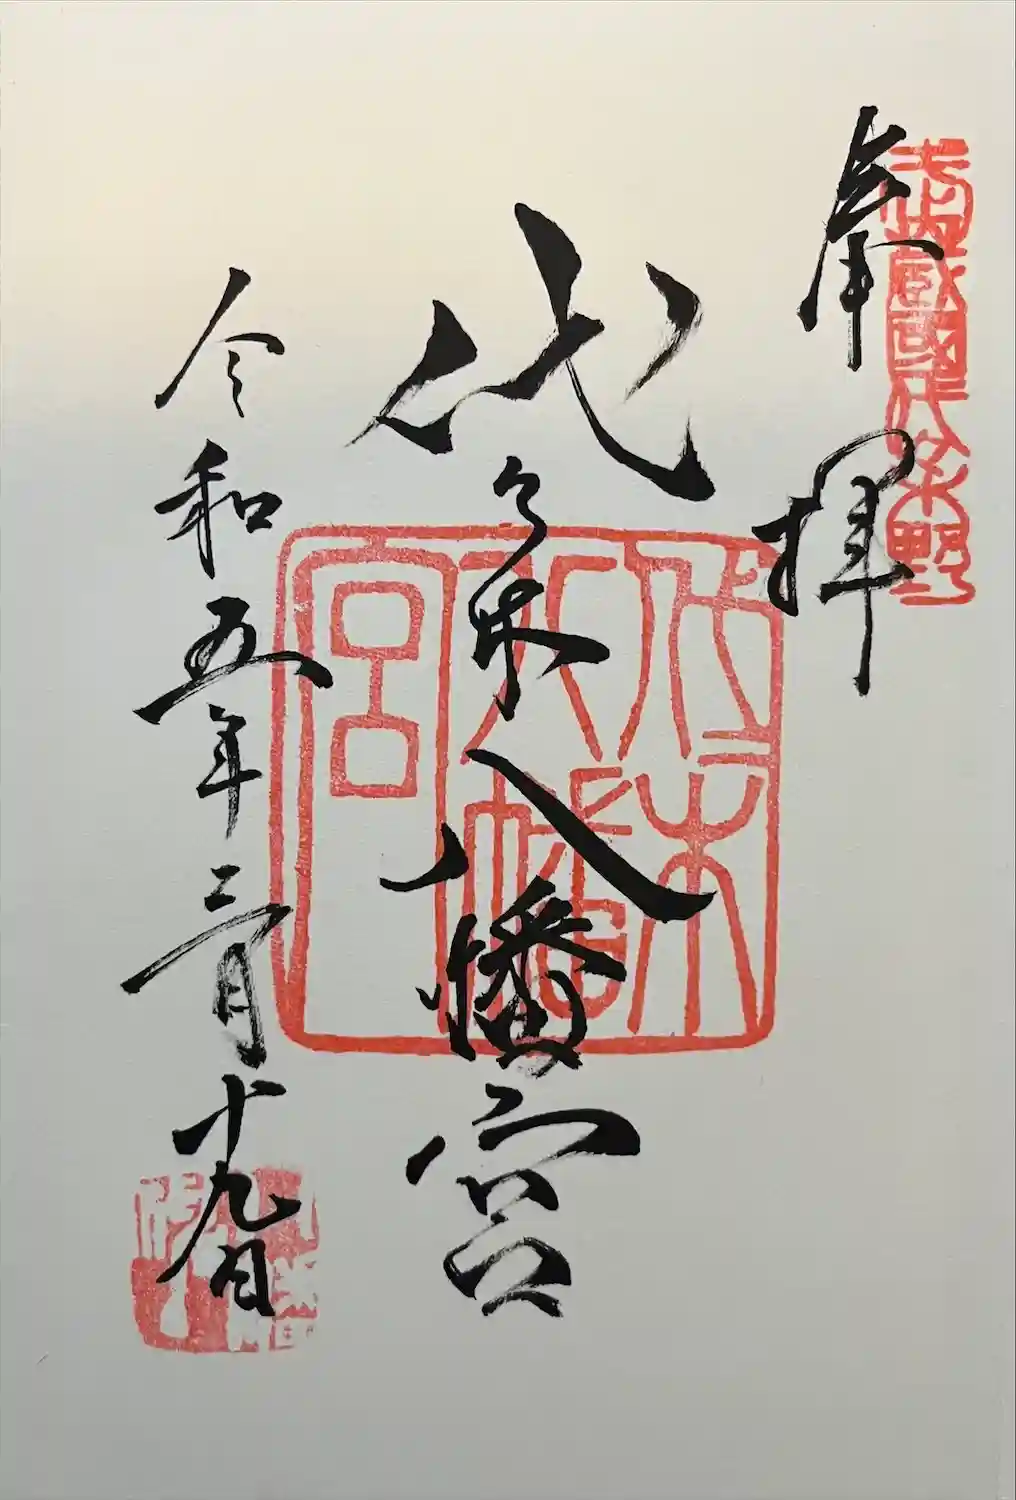 奉拝
武蔵國代々木野
代々木八幡宮
代々木八幡宮
令和五年二月十九日